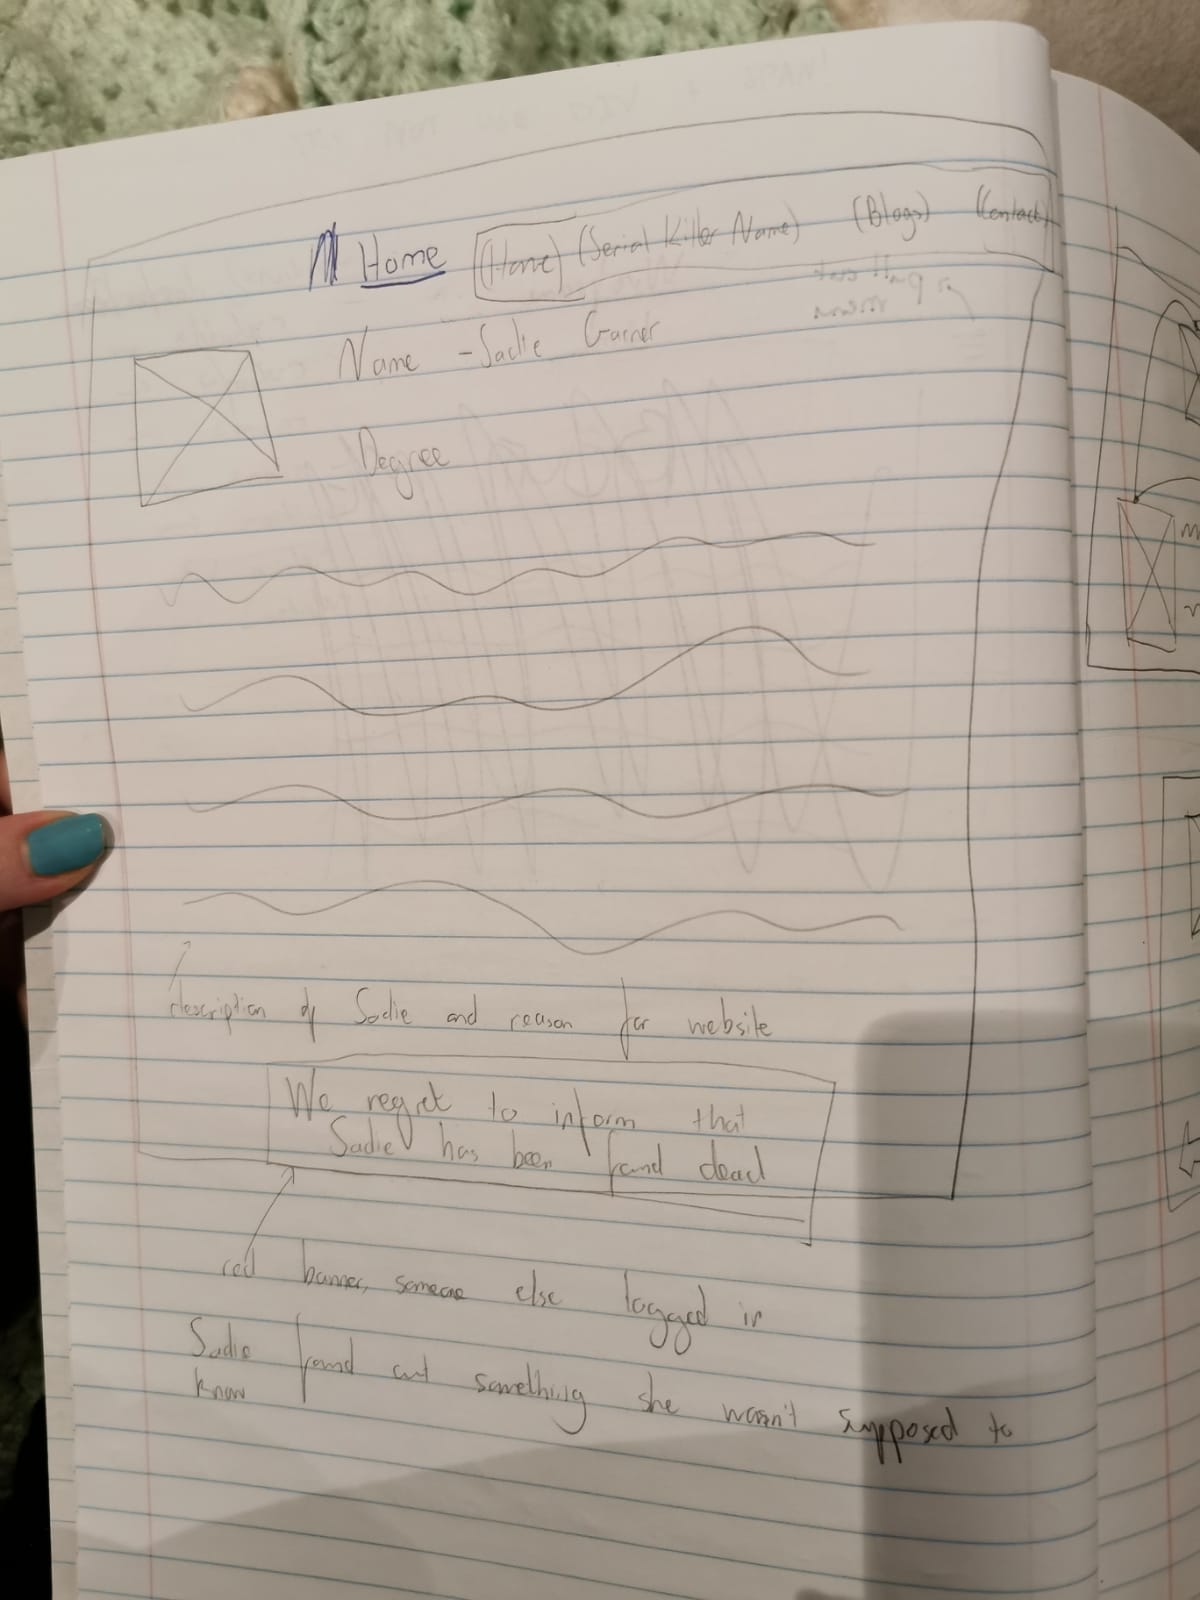 Home (Home) (Serial Killer Name) (Blogs) (Contact)
Name - Sadie Garner
Degree
description of Sadie and reason for website
We regret to inform that
Sadie has been found dead
red banner, someone else logged in
Sadie found out something she wasn't supposed to
know